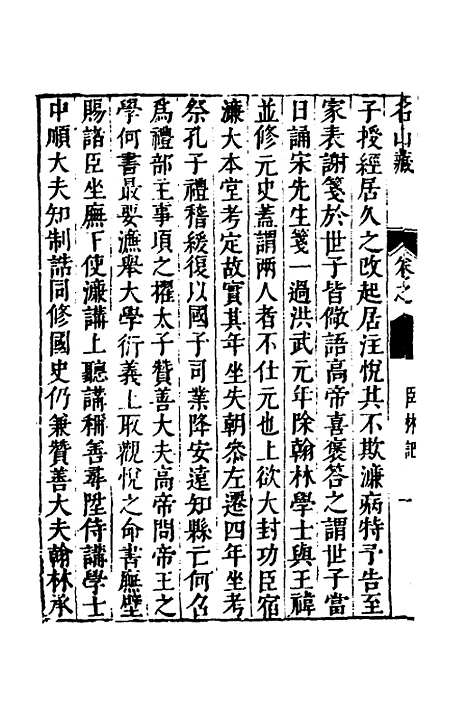 名山藏 卷之 臣林記 一
子授經居久之改起居注悅其不欺濂病特予告至
家表謝箋於世子皆儆語高帝喜褒答之謂世子當
日誦宋先生箋一過洪武元年除翰林學士與王禕
並修元史蓋謂兩人者不仕元也上欲大封功臣宿
濂大本堂考定故實其年坐失朝參左遷四年坐考
祭孔子禮稽緩復以國子司業降安遠知縣亡何召
爲禮部主事頃之擢太子贊善大夫高帝問帝王之
學何書最要濂舉大學衍義上取觀悅之命書廡壁
賜諸臣坐廡下使濂講上聽講稱善尋陞侍講學士
中順大夫知制誥同修國史仍兼贊善大夫翰林承